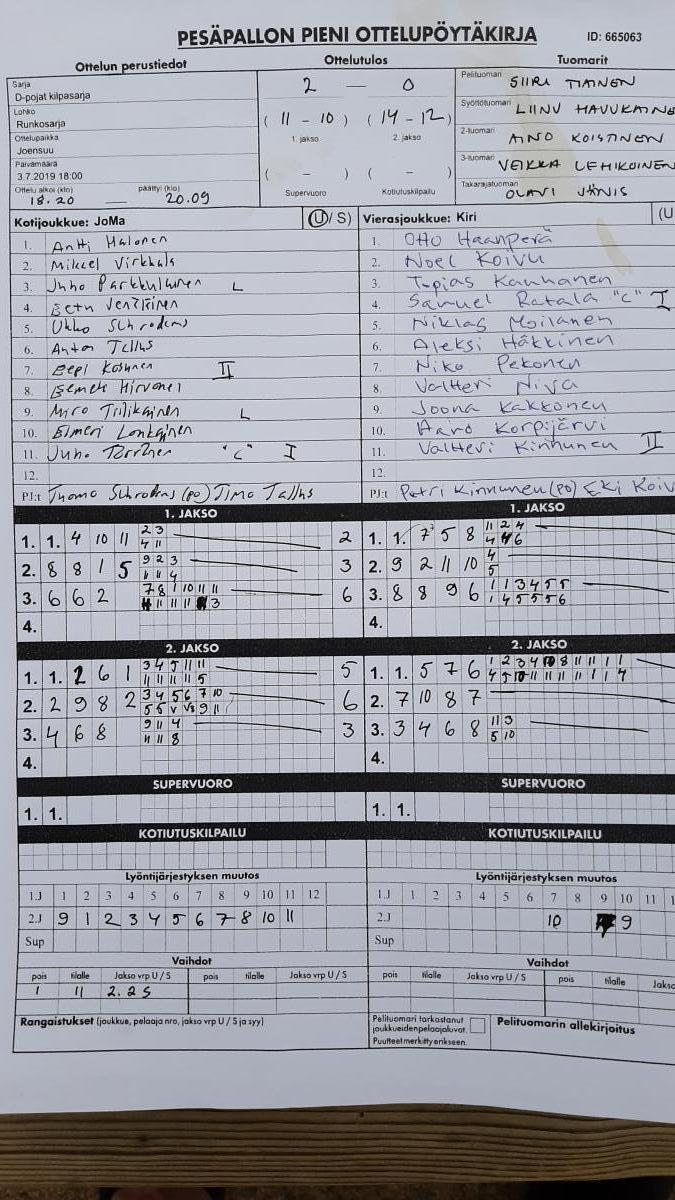 PESÄPALLON PIENI OTTELUPÖYTÄKIRJA ID: 665063
Ottelun perustiedot
Ottelutulos
Tuomarit
Sarja
D-pojat kilpasarja
Lohko
Runkosarja
Ottelupaikka
Joensuu
Päivämäärä
3.7.2019 18:00
Ottelu alkoi (klo) päättyi (klo)
18.20 — 20.09
2 — 0
( 11 - 10 ) ( 14 - 12 )
1. jakso 2. jakso
( - ) ( - )
Supervuoro Kotiutuskilpailu
Pelituomari SIIRI TIAINEN
Syöttötuomari LIINU HAVUKAINE
2-tuomari AINO KOISTINEN
3-tuomari VEIKKA LEHIKOINEN
Takarajatuomari OLAVI JÄNIS
Kotijoukkue: JoMa (U/ S)
1. Antti Halonen
2. Mikael Virkkala
3. Juho Parkkulainen L
4. Eetu
5. Ukko Schroderus
6. Anton Tallus
7. Eepi Kosunen II
8. Eemeli Hirvonen
9. Miro L
10. Elmeri
11. Juho "C" I
12.
PJ:t Tuomo Schroderus (po) Timo Tallus
Vierasjoukkue: Kiri (U
1. Otto Haanperä
2. Noel Koivu
3. Topias Kauhanen
4. Samuel Ratala "C" I
5. Niklas Moilanen
6. Aleksi Häkkinen
7. Niko Pekonen
8. Valtteri Niva
9. Joona Kakkonen
10. Aaro Korpijärvi
11. Valtteri Kinnunen II
12.
PJ:t Petri Kinnunen (po) Eki Koiv
1. JAKSO
1. 1. 4 10 11 2 3 2
4 11
2. 8 8 1 5 9 2 3 3
11 11 4
3. 6 6 2 7 8 1 10 11 11 6
11 11 11 3
4.
1. JAKSO
1. 1. 7 5 8 11 2 4
4 6
2. 9 2 11 10 4
5
3. 8 8 9 6 1 1 3 4 5 5
1 4 5 5 5 6
4.
2. JAKSO
1. 1. 2 6 1 3 4 5 11 11 5
11 11 11 11 5
2. 2 9 8 2 3 4 5 6 7 10 6
5 5 V V8 9 11
3. 4 6 8 9 11 4 3
11 11 8
4.
2. JAKSO
1. 1. 5 7 6 1 2 3 4 10 8 11 11 1 1
4 5 10 11 11 11 11 1 1 4
2. 7 10 8 7
3. 3 4 6 8 11 3
5 10
4.
SUPERVUORO
1. 1.
SUPERVUORO
1. 1.
KOTIUTUSKILPAILU
KOTIUTUSKILPAILU
Lyöntijärjestyksen muutos
1.J 1 2 3 4 5 6 7 8 9 10 11 12
2.J 9 1 2 3 4 5 6 7 8 10 11
Sup
Lyöntijärjestyksen muutos
1.J 1 2 3 4 5 6 7 8 9 10 11 1
2.J 10 9
Sup
Vaihdot
pois tilalle Jakso vrp U / S pois tilalle Jakso vrp U / S
1 11 2.2S
Vaihdot
pois tilalle Jakso vrp U / S pois tilalle Jakso
Rangaistukset (joukkue, pelaaja nro, jakso vrp U / S ja syy)
Pelituomari tarkastanut
joukkueiden pelaajaluvat.
Puutteet merkitty erikseen.
Pelituomarin allekirjoitus